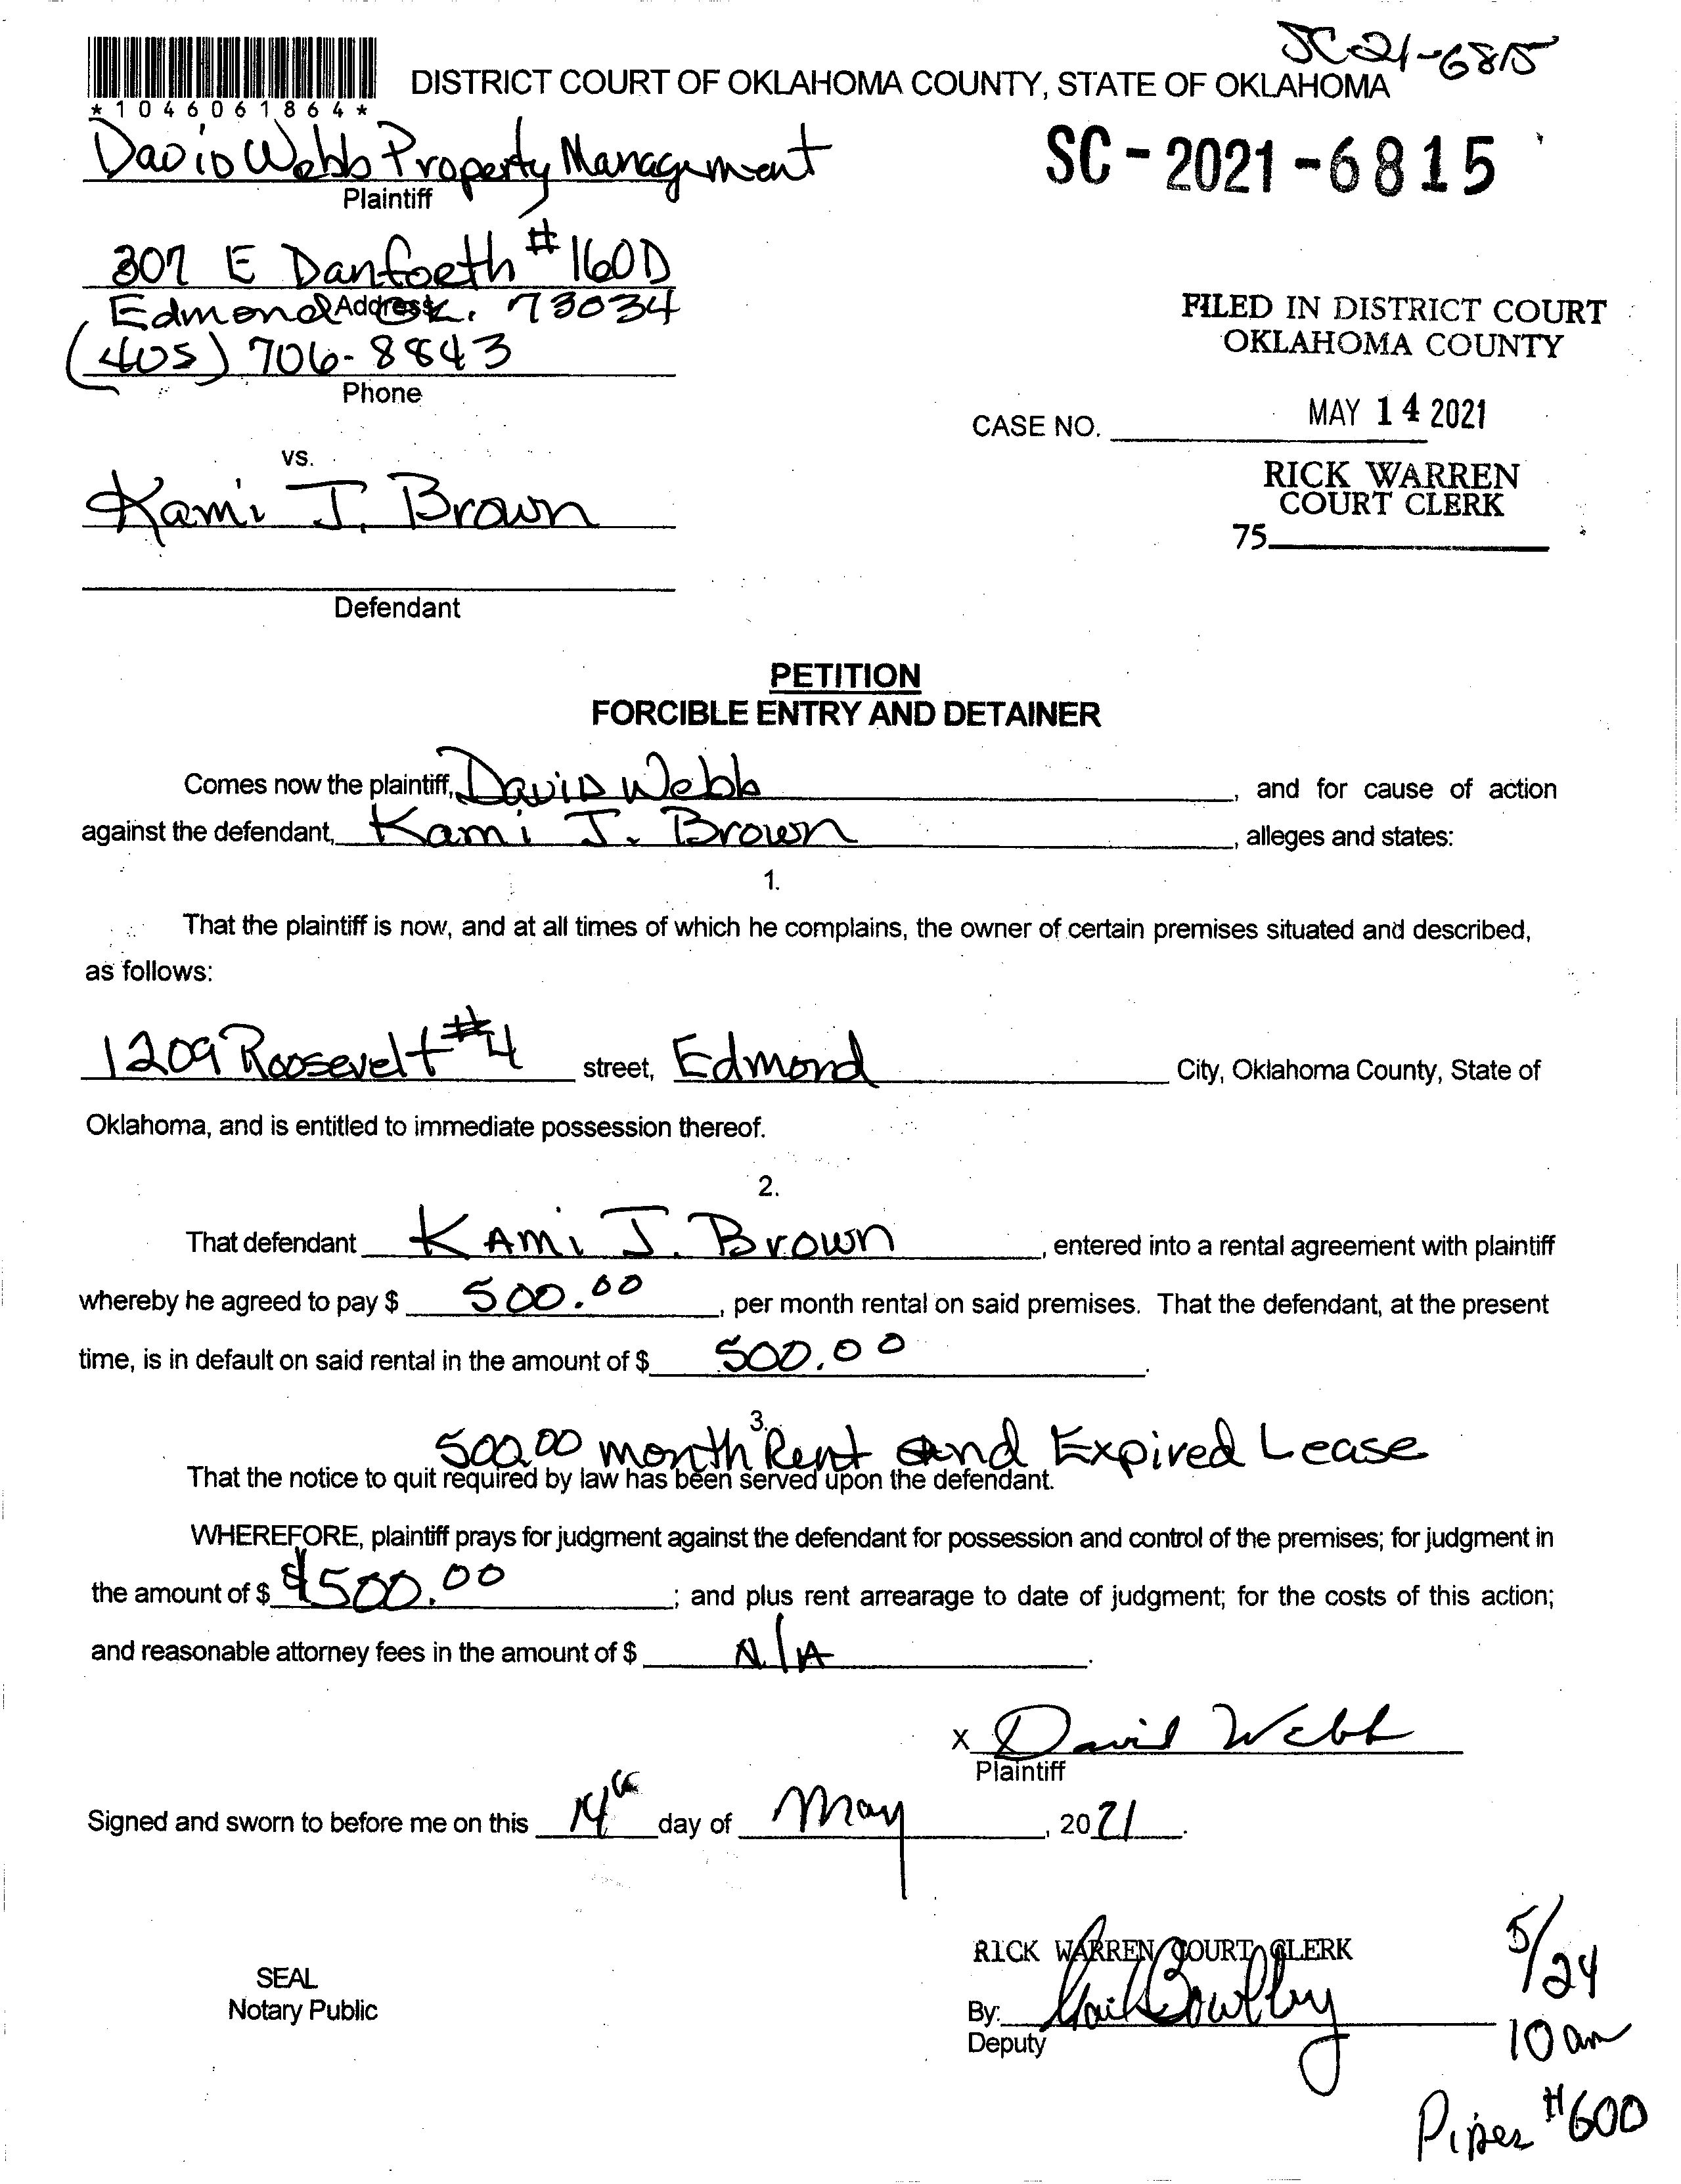 SC-21-6815
DISTRICT COURT OF OKLAHOMA COUNTY, STATE OF OKLAHOMA
*1046061864*
David Webb Property Management
Plaintiff
SC-2021-6815
307 E Danforth #160D
Address
Edmond Ok. 73034
(405) 706-8843
Phone
FILED IN DISTRICT COURT
OKLAHOMA COUNTY
MAY 14 2021
CASE NO.
RICK WARREN
COURT CLERK
75
vs.
Kami J. Brown
Defendant
PETITION
FORCIBLE ENTRY AND DETAINER
Comes now the plaintiff, David Webb, and for cause of action
against the defendant, Kami J. Brown, alleges and states:
1.
That the plaintiff is now, and at all times of which he complains, the owner of certain premises situated and described,
as follows:
1209 Roosevelt #4 street, Edmond City, Oklahoma County, State of
Oklahoma, and is entitled to immediate possession thereof.
2.
That defendant Kami J. Brown, entered into a rental agreement with plaintiff
whereby he agreed to pay $ 500.00, per month rental on said premises. That the defendant, at the present
time, is in default on said rental in the amount of $ 500.00.
3.
500.00 month Rent and Expired Lease
That the notice to quit required by law has been served upon the defendant.
WHEREFORE, plaintiff prays for judgment against the defendant for possession and control of the premises; for judgment in
the amount of $ $500.00; and plus rent arrearage to date of judgment; for the costs of this action;
and reasonable attorney fees in the amount of $ N/A.
X David Webb
Plaintiff
Signed and sworn to before me on this 14th day of May, 2021.
RICK WARREN COURT CLERK
SEAL
Notary Public
By: Gail Bowlby
Deputy
5/24
10 am
Piper #600